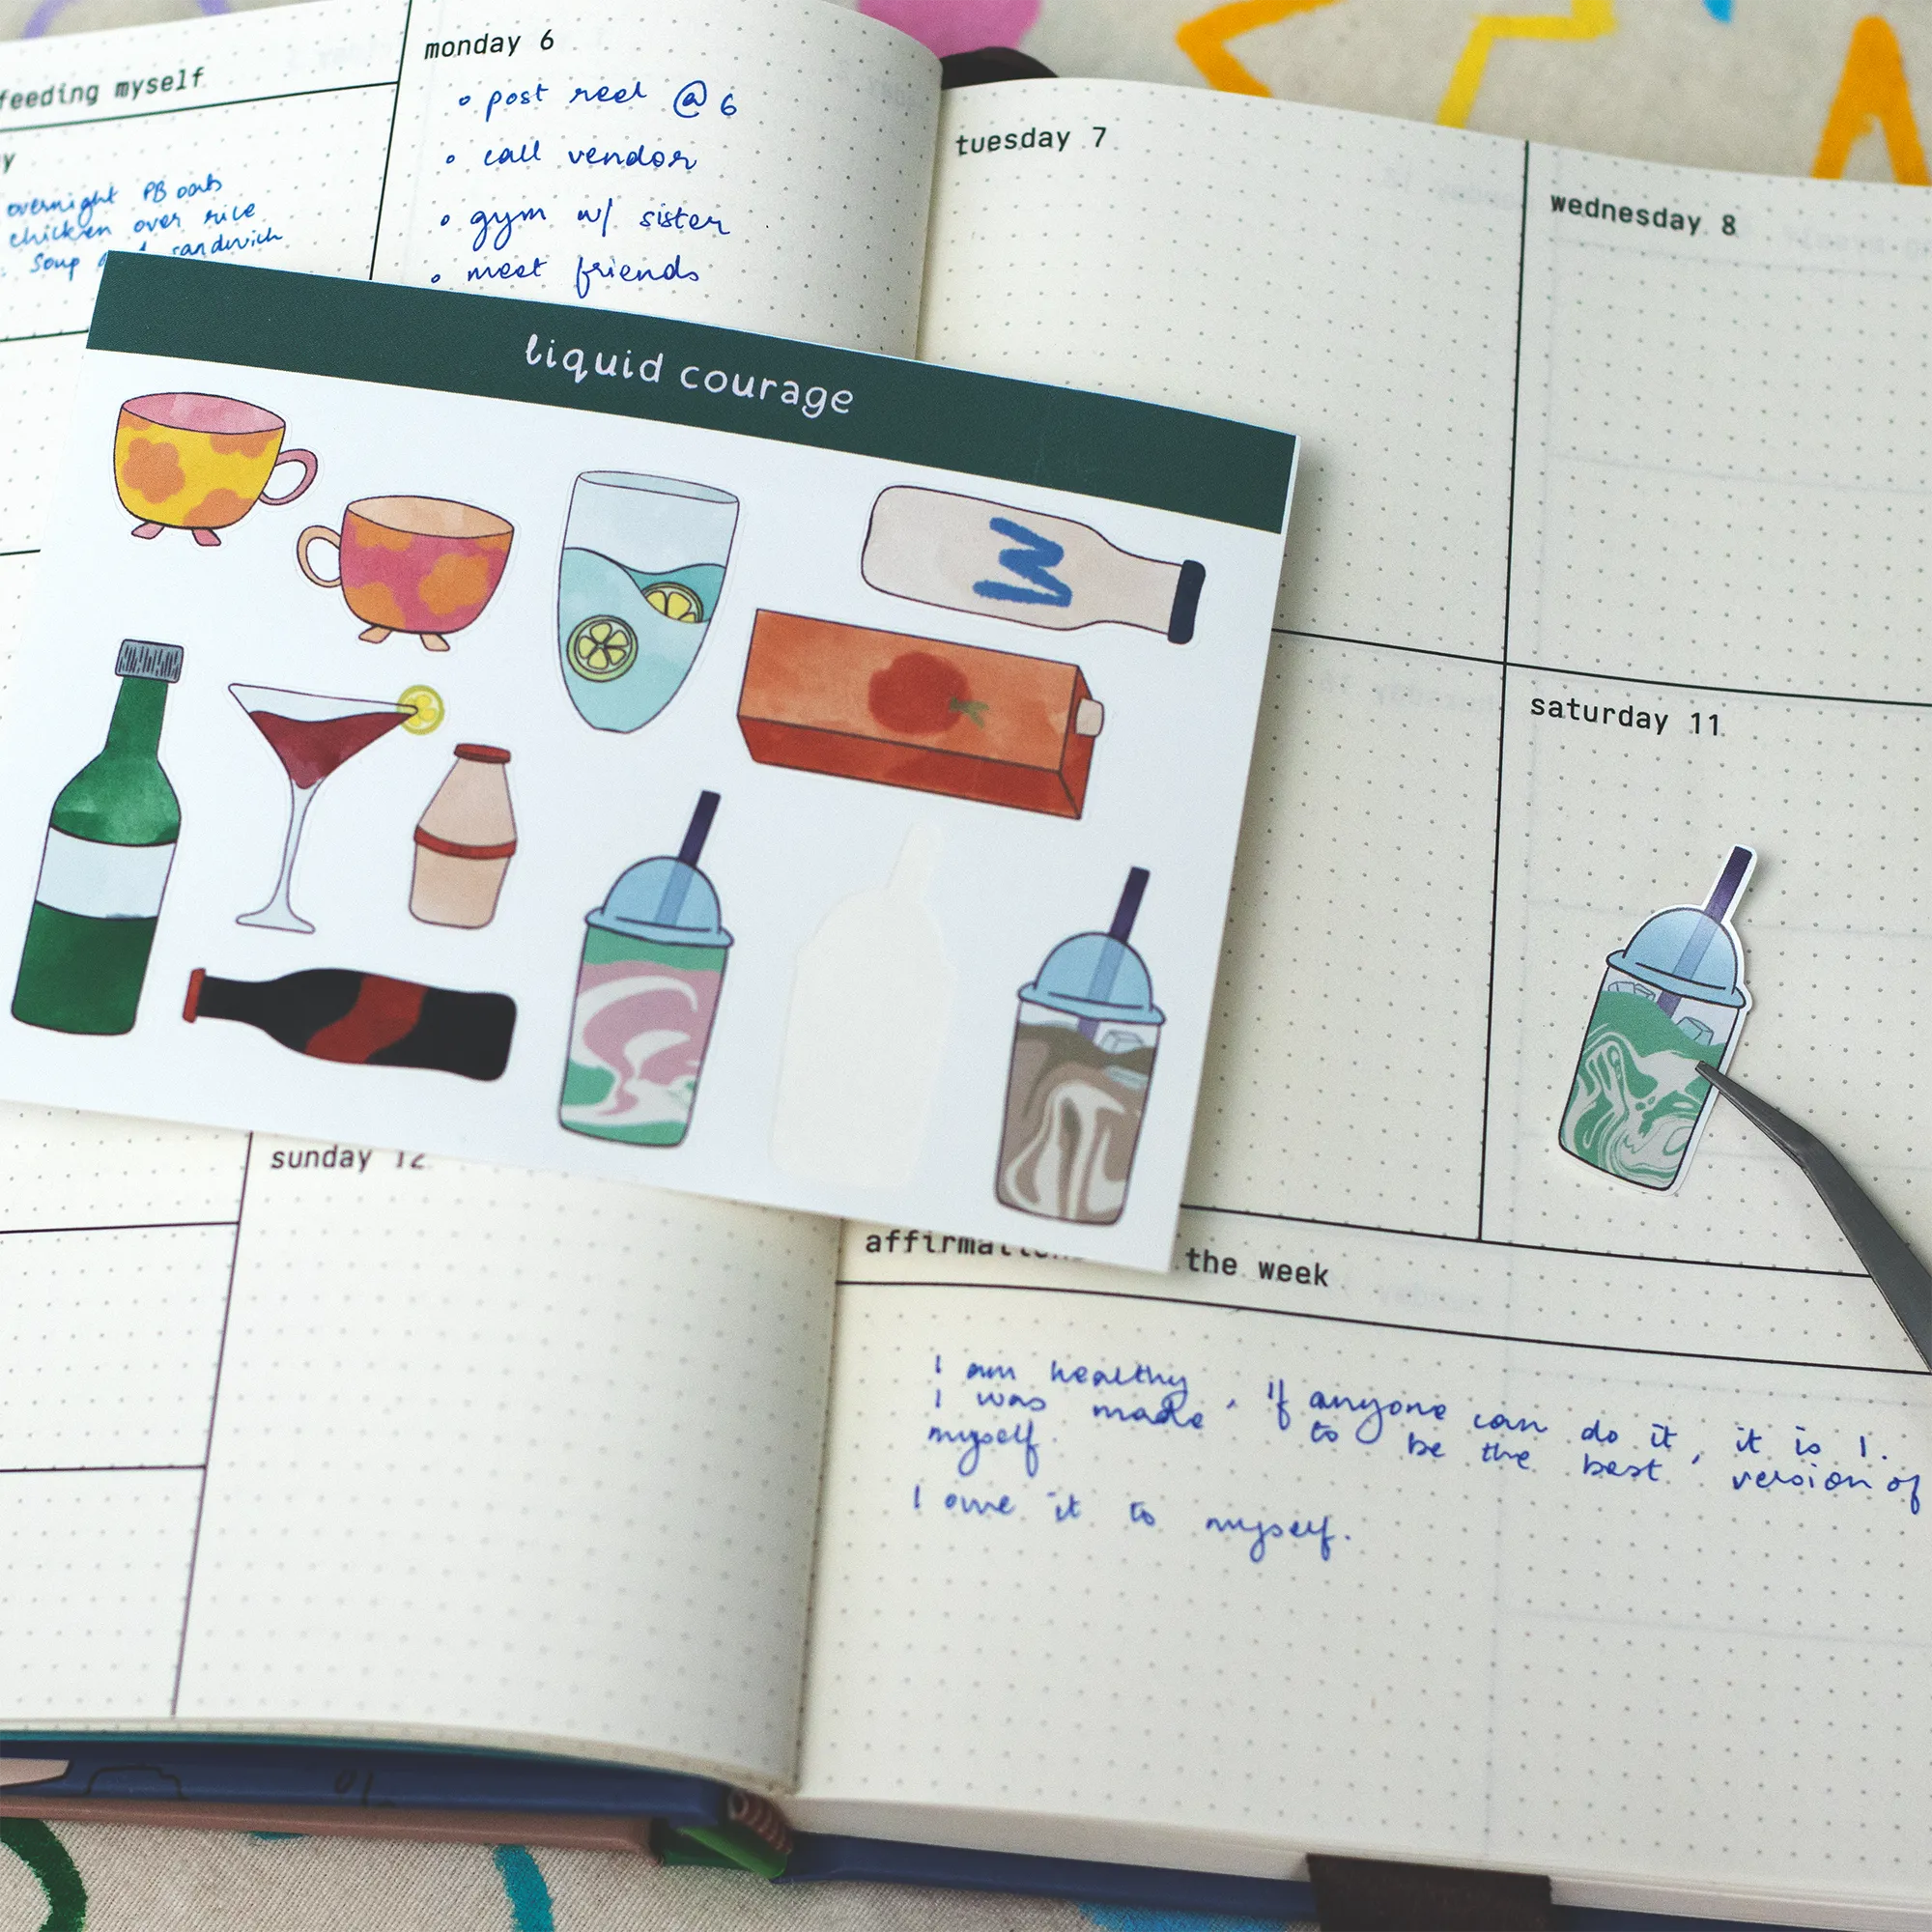 feeding myself
overnight PB oats
chicken over rice
Soup sandwich
monday 6
post reel @ 6
call vendor
gym w/ sister
meet friends
tuesday 7
wednesday 8
liquid courage
saturday 11
sunday 12
the week
I am healthy, if anyone can do it, it is I.
I was made to be the best version of
myself.
I owe it to myself.